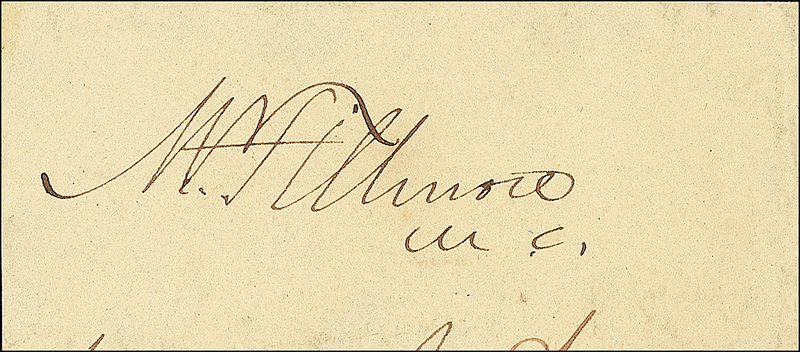 M. Fillmore
M. C.